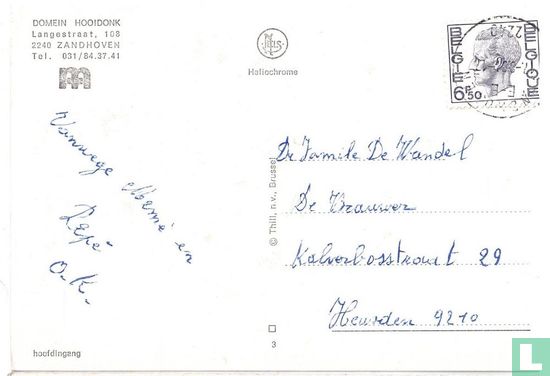 DOMEIN HOOIDONK
Langestraat, 108
2240 ZANDHOVEN
Tel. 031/84.37.41
Nels
Heliochrome
BELGIE
BELGIQUE
6F50
2240
Vanwege Memie en
Pepé
O.K.
© Thill, n.v., Brussel
Dr Familie De Wandel
De Brauwer
Kalverbosstraat 29
Heusden 9210
hoofdingang
3
LastDodo